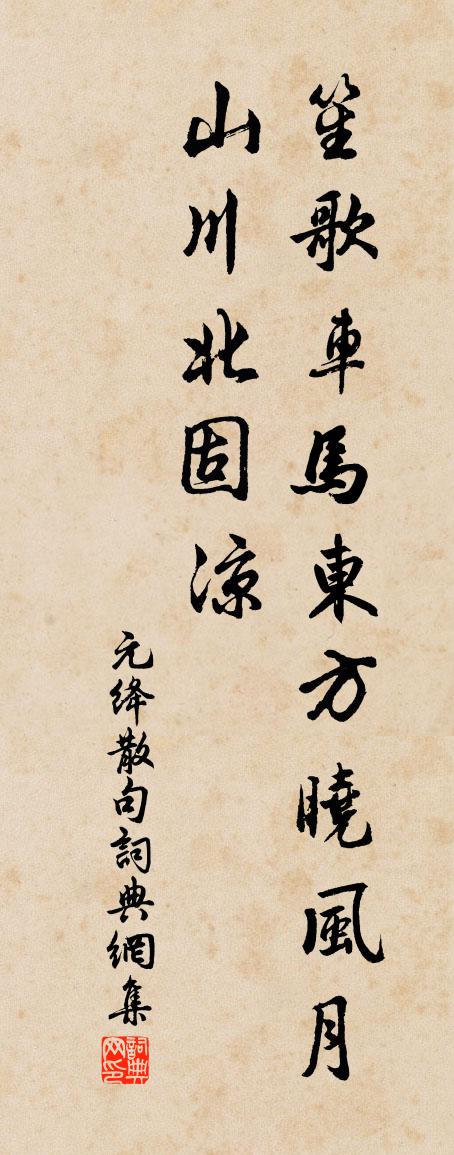 笙歌車馬東方曉風月
山川北固涼
元絳散句詞典網集
詞典网印